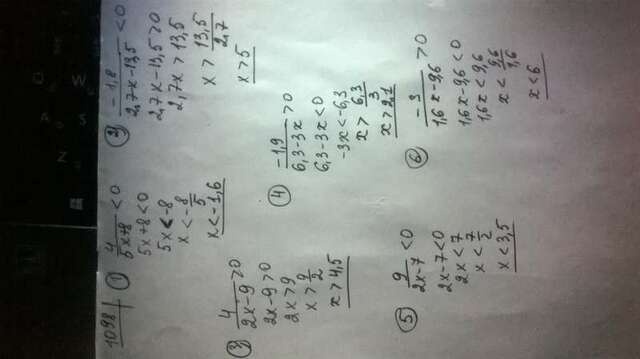 1098
① 4/(5x+8) < 0
5x+8 < 0
5x < -8
x < -8/5
x < -1,6
② -1,8/(2,7x-13,5) < 0
2,7x-13,5 > 0
2,7x > 13,5
x > 13,5/2,7
x > 5
③ 4/(2x-9) > 0
2x-9 > 0
2x > 9
x > 9/2
x > 4,5
④ -1,9/(6,3-3x) > 0
6,3-3x < 0
-3x < -6,3
x > 6,3/3
x > 2,1
⑤ 9/(2x-7) < 0
2x-7 < 0
2x < 7
x < 7/2
x < 3,5
⑥ -3/(1,6x-9,6) > 0
1,6x-9,6 < 0
1,6x < 9,6
x < 9,6/1,6
x < 6
O
W
A
S
Z